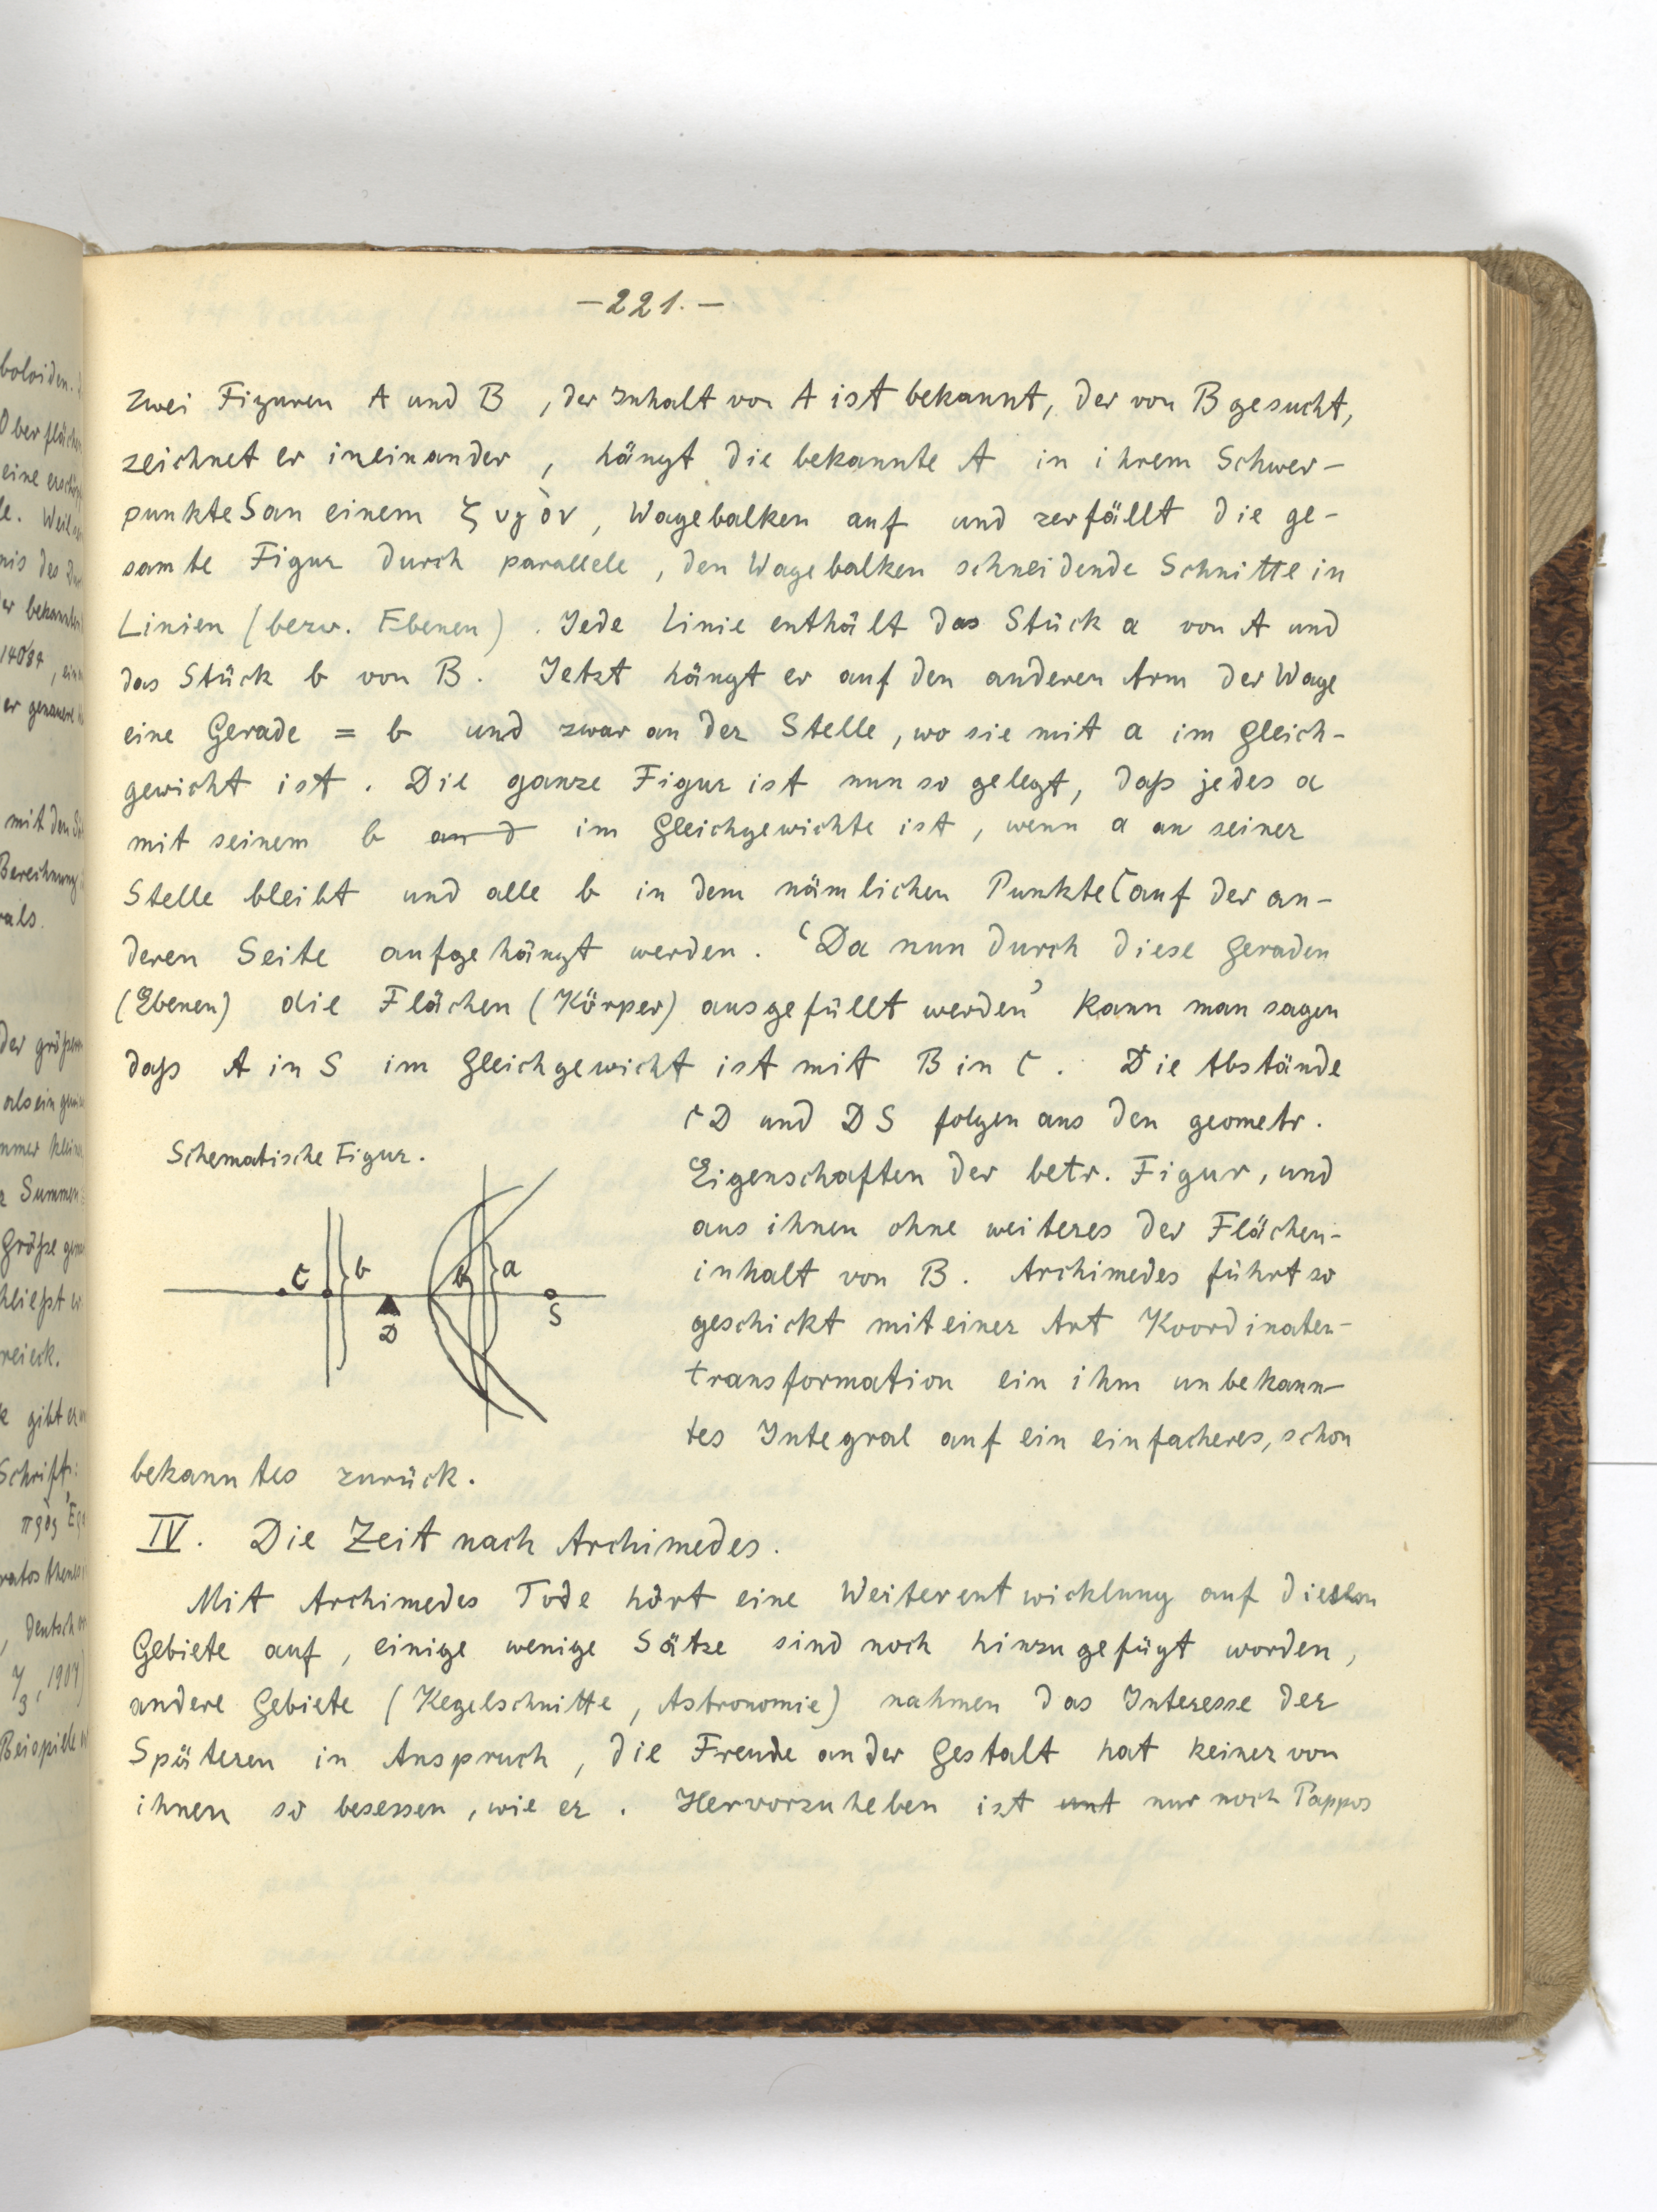 —221.—
zwei Figuren A und B, der Inhalt von A ist bekannt, der von B gesucht,
zeichnet er ineinander, hängt die bekannte A in ihrem Schwer-
punkte S an einem ζυγὸν, Wagebalken auf und zerfällt die ge-
samte Figur durch parallele, den Wagebalken schneidende Schnitte in
Linien (bezw. Ebenen). Jede Linie enthält das Stück a von A und
das Stück b von B. Jetzt hängt er auf den anderen Arm der Wage
eine Gerade = b und zwar an der Stelle, wo sie mit a im Gleich-
gewicht ist. Die ganze Figur ist nun so gelegt, daß jedes a
mit seinem b an d im Gleichgewichte ist, wenn a an seiner
Stelle bleibt und alle b in dem nämlichen Punkte C auf der an-
deren Seite aufgehängt werden. ‘Da nun durch diese Geraden
(Ebenen) die Flächen (Körper) ausgefüllt werden’ kann man sagen
daß A in S im Gleichgewicht ist mit B in C. Die Abstände
CD und DS folgen aus den geometr.
Eigenschaften der betr. Figur, und
aus ihnen ohne weiteres der Flächen-
inhalt von B. Archimedes führt so
geschickt mit einer Art Koordinaten-
transformation ein ihm unbekann-
tes Integral auf ein einfacheres, schon
Schematische Figur.
C b b a
D S
bekanntes zurück.
IV. Die Zeit nach Archimedes.
Mit Archimedes Tode hört eine Weiterentwicklung auf diesem
Gebiete auf, einige wenige Sätze sind noch hinzugefügt worden,
andere Gebiete (Kegelschnitte, Astronomie) nahmen das Interesse der
Späteren in Anspruch, die Freude an der Gestalt hat keiner von
ihnen so besessen, wie er. Hervorzuheben ist unt nur noch Pappos